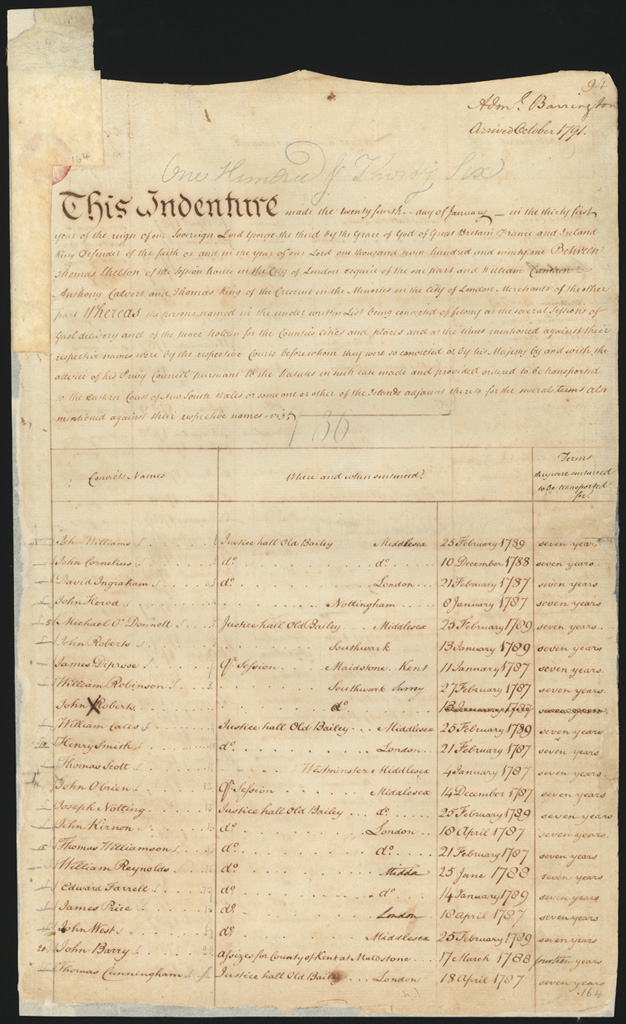 94
Adm.l Barrington
Arrived October 1791.
164
One Hundred & Thirty Six
This Indenture made the twenty fourth day of January in the thirty first
year of the reign of our Sovereign Lord George the third by the Grace of God of Great Britain France and Ireland
King Defender of the faith &c and in the year of our Lord one thousand seven hundred and ninety one Between
Thomas Shelton of the Session house in the City of London esquire of the one part and William Camden
Anthony Calvert and Thomas King of the Crescent in the Minories in the City of London Merchants of the other
part Whereas the persons named in the under written List being convicted of felony at the several Sessions of
Gaol delivery and of the peace holden for the Counties cities and places and at the times mentioned against their
respective names were by the respective Courts before whom they were so convicted or by his Majesty by and with the
advice of his Privy Council pursuant to the Statutes in such case made and provided ordered to be transported
to the Eastern Coast of New South Wales or some one or other of the Islands adjacent thereto for the several terms also
mentioned against their respective names viz.t
136
Convicts Names Where and when sentenced Terms they were sentenced to be transported for
John Williams Justice hall Old Bailey Middlesex 25 February 1789 seven years
John Cornelius d.o d.o 10 December 1788 seven years
David Ingraham d.o London 21 February 1787 seven years
John Herod Nottingham 8 January 1787 seven years
5 Michael O'Donnell Justice hall Old Bailey Middlesex 25 February 1789 seven years
John Roberts Southwark 13 January 1789 seven years
James Diprose Q.r Session Maidstone Kent 11 January 1787 seven years
William Robinson Southwark Surry 27 February 1787 seven years
John Roberts d.o 13 January 1789 seven years
William Cales Justice hall Old Bailey Middlesex 25 February 1789 seven years
Henry Smith d.o London 21 February 1787 seven years
Thomas Scott Westminster Middlesex 4 January 1787 seven years
John Obrien Q.r Session Middlesex 14 December 1787 seven years
Joseph Notting Justice hall Old Bailey d.o 25 February 1789 seven years
John Kirnon d.o London 18 April 1787 seven years
Thomas Williamson d.o d.o 21 February 1787 seven years
William Reynolds d.o Middx 25 June 1788 seven years
Edward Farrell d.o d.o 14 January 1789 seven years
James Rice d.o London 18 April 1787 seven years
John West d.o Middlesex 25 February 1789 seven years
20 John Barry assizes for County of Kent at Maidstone 17 March 1788 fourteen years
Thomas Cunningham Justice hall Old Bailey London 18 April 1787 seven years
164